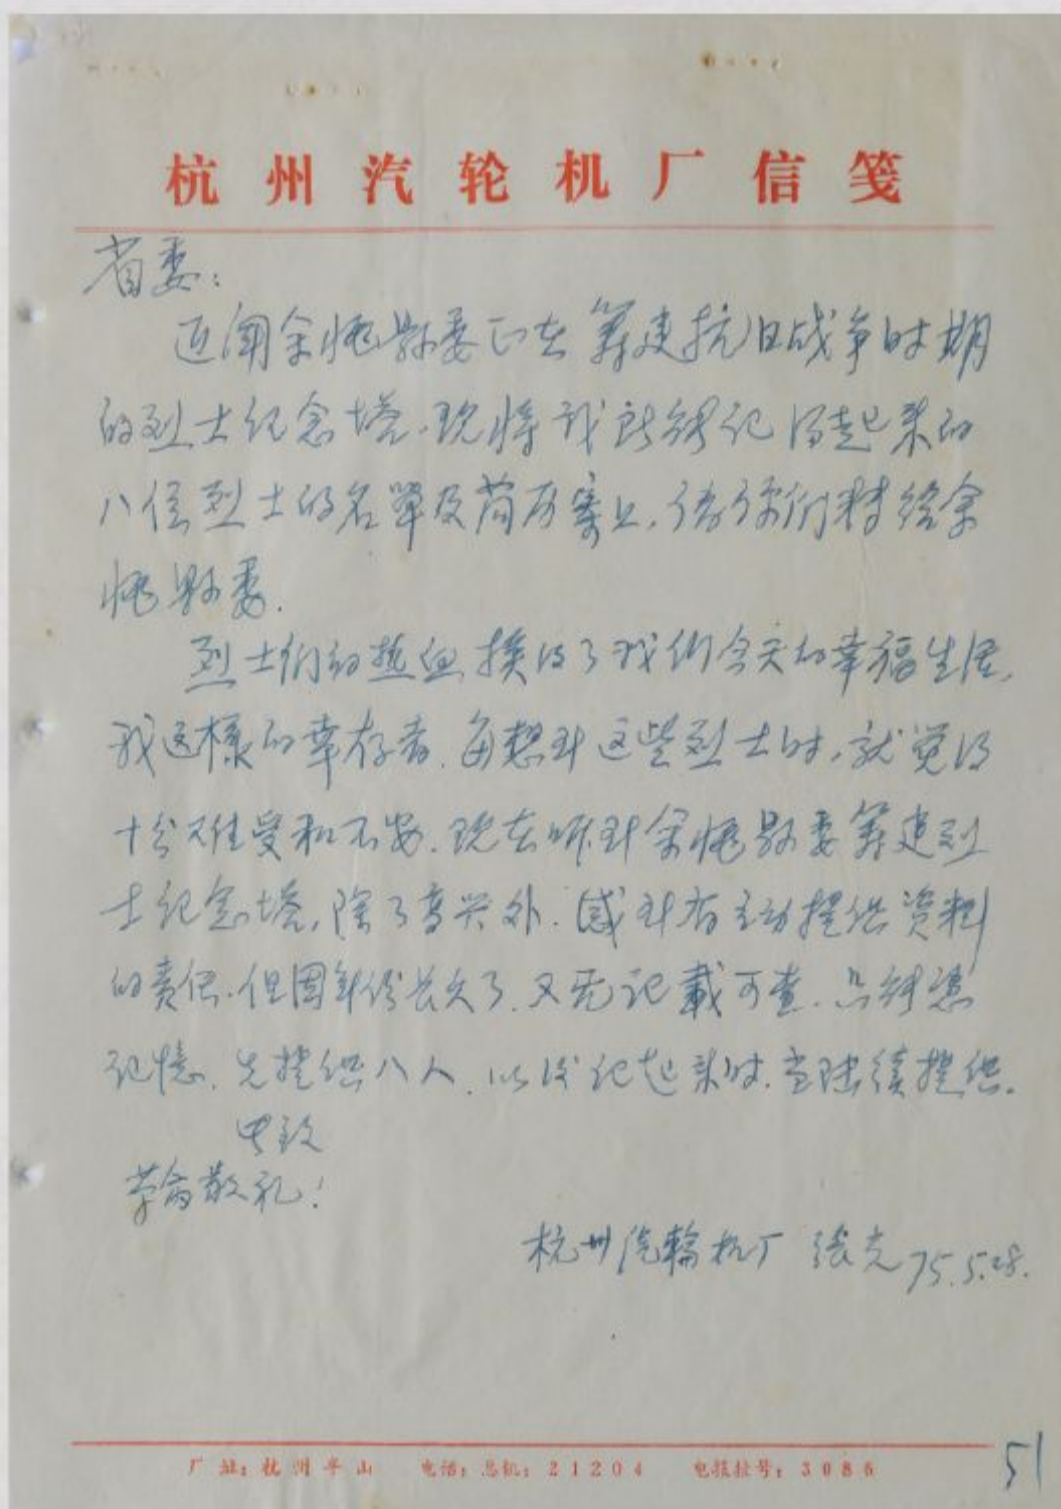 杭州汽轮机厂信笺
省委：
近闻余姚县委正在筹建抗日战争时期
的烈士纪念塔。现将我所能记得起来的
八位烈士的名單及简历寄上，请你们转给余
姚县委。
烈士们的热血换得了我们今天的幸福生活，
我这樣的幸存者，每想到这些烈士时，就觉得
十分难受和不安。现在听到余姚县委筹建烈
士纪念塔，除了高兴外，感到有主动提供资料
的责任。但因年份长久了，又无记載可查，只能憑
记憶，先提供八人，以后记起来时，当陆續提供。
此致
革命敬礼！
杭州汽輪机厂 张克 75.5.28.
厂址：杭州半山 电话：总机：21204 电报挂号：3086
51